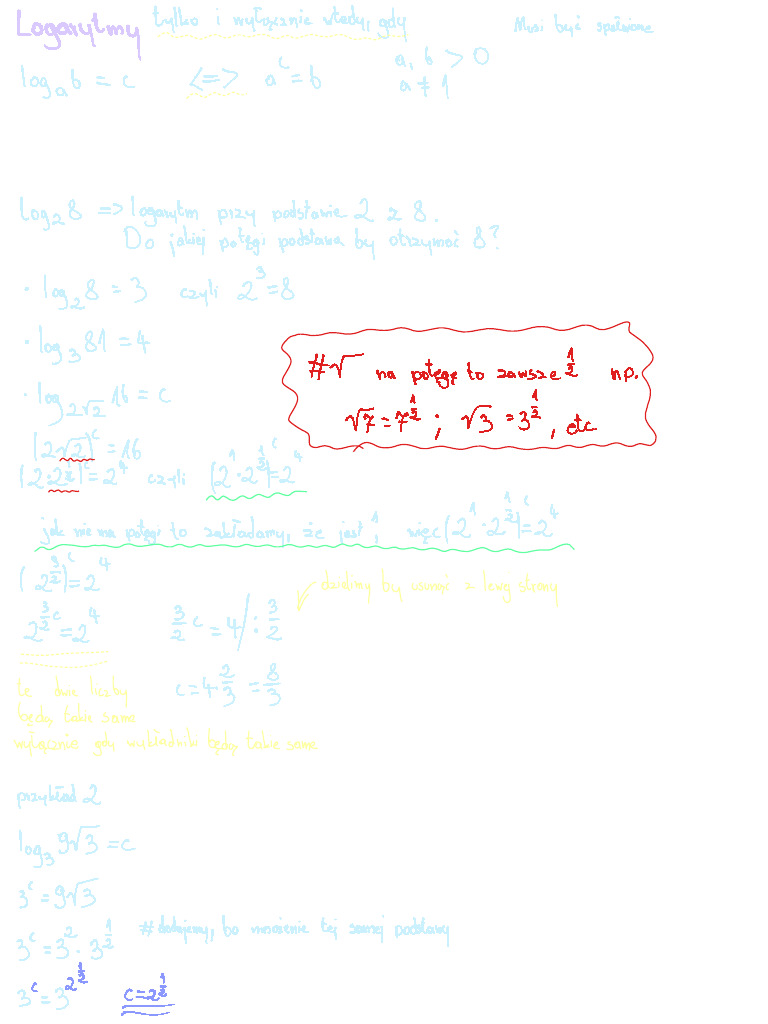 Logarytmy tylko i wyłącznie wtedy, gdy Musi być spełnione
logₐb = c <=> aᶜ = b a, b > 0
a ≠ 1
log₂8 => logarytm przy podstawie 2 z 8.
Do jakiej potęgi podstawa by otrzymać 8?
· log₂8 = 3 czyli 2³ = 8
· log₃81 = 4
#√ na potęgę to zawsze ½ np.
√7 = 7^½ ; √3 = 3^½, etc
· log_2√2 16 = c
(2√2)ᶜ = 16
(2·2^½)ᶜ = 2⁴ czyli (2¹·2^½)ᶜ = 2⁴
jak nie ma potęgi to zakładamy, że jest 1, więc (2¹·2^½)ᶜ = 2⁴
(2^3/2)ᶜ = 2⁴
dzielimy by usunąć z lewej strony
2^3/2 c = 2⁴ 3/2 c = 4 /: 3/2
c = 4·2/3 = 8/3
te dwie liczby
będą takie same
wyłącznie gdy wykładniki będą takie same
przykład 2
log₃ 9√3 = c
3ᶜ = 9√3
3ᶜ = 3² · 3^½ #dodajemy, bo mnożenie tej samej podstawy
3ᶜ = 3^2½ c = 2½